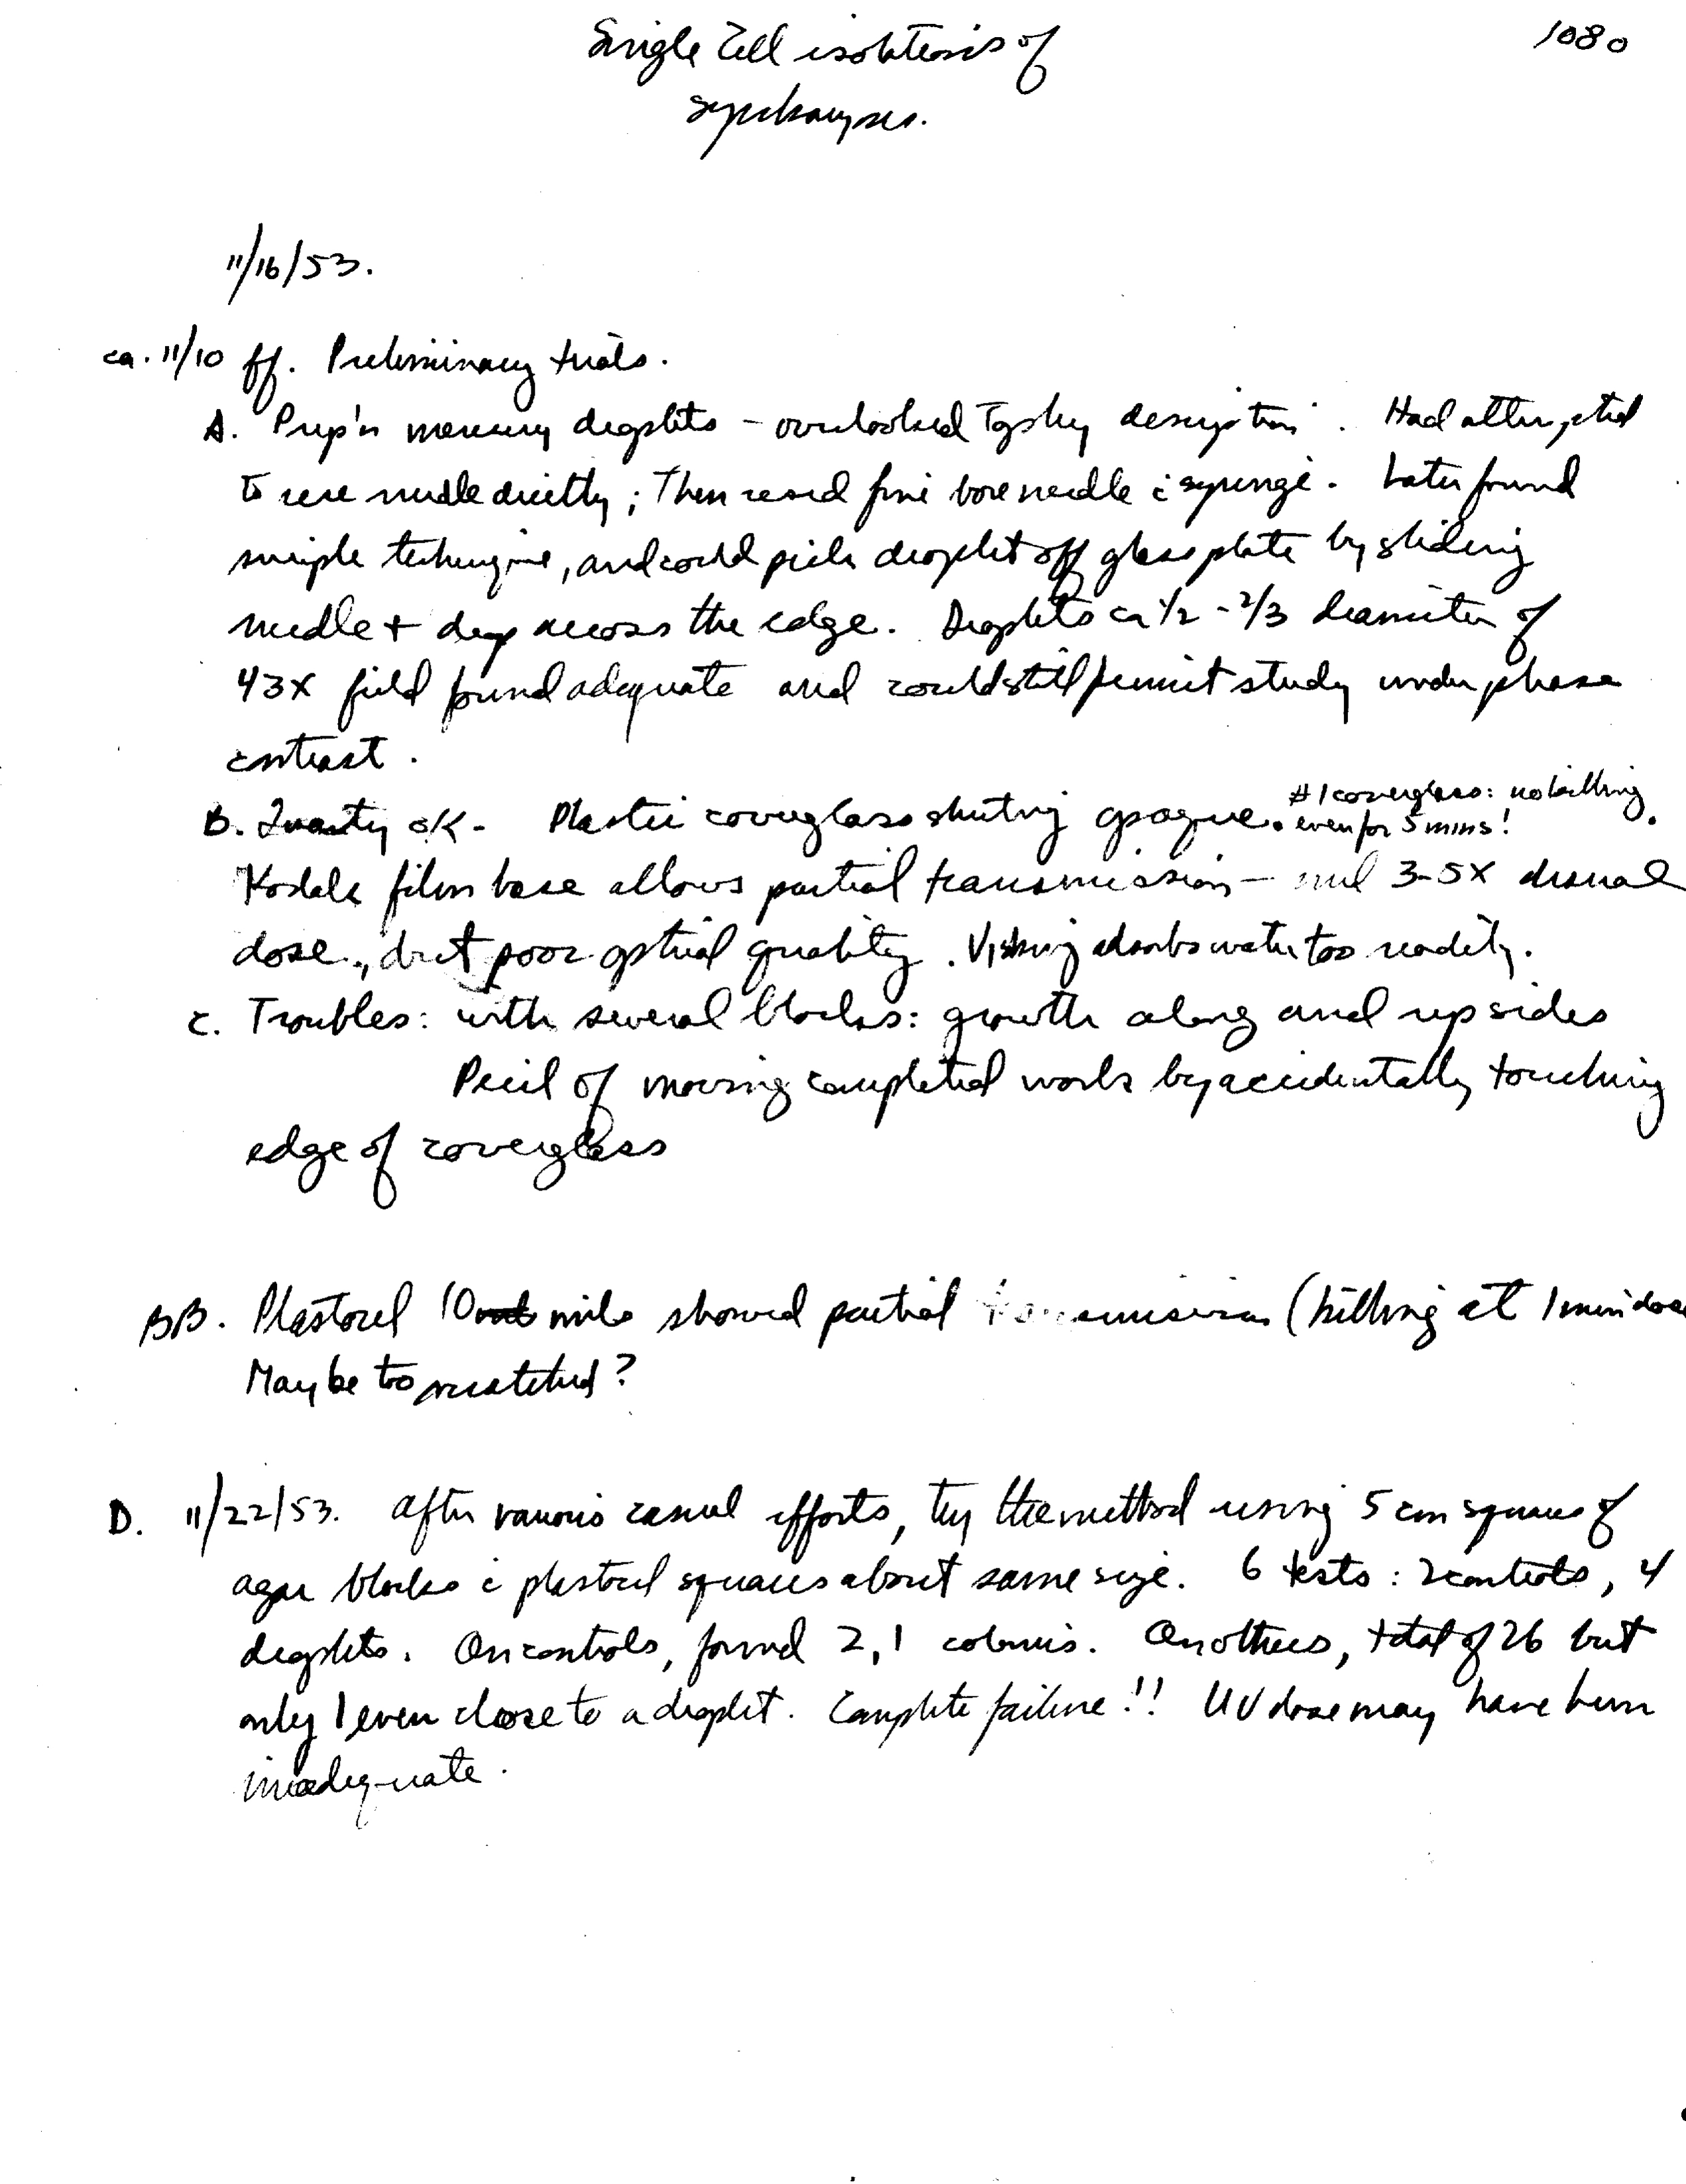 Single Cell isolations of
1080
11/16/53.
ca. 11/10 ff. Preliminary trials.
A. Prep'n mercury droplets - overlooked description. Had attempted
to use needle directly; Then used fine bore needle c̄ syringe. Later found
simple technique, and could pick droplet off glass plate by sliding
needle + drop across the edge. Droplets ca 1/2 - 2/3 diameter of
43X field found adequate and could still permit study under phase
contrast.
B. OK - Plastic coverglass sheeting opaque. #1 coverglass: no killing
even for 5 mins!
Kodak film base allows partial transmission - 3-5X
dose, but poor optical quality. Visking adsorbs water too readily.
C. Troubles: with several blocks: growth along and up sides
Peril of moving completed work by accidentally touching
edge of coverglass
BB. 10 mils showed partial transmission (killing at 1 min dose
May be too ?
D. 11/22/53. After various casual efforts, try the method using 5 cm squares of
agar blocks c̄ squares about same size. 6 tests: 2 controls, 4
droplets. On controls, found 2, 1 colonies. On others, total of 26 but
only 1 even close to a droplet. Complete failure!! UV dose may have been
inadequate.